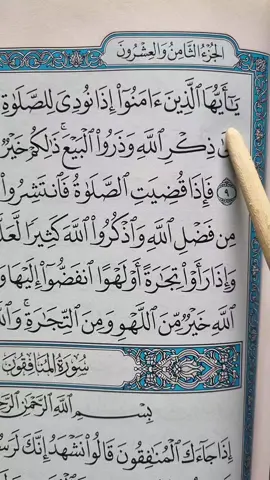 الجُزْءُ الثَّامِنُ وَالعِشْرُون
يَٰٓأَيُّهَا ٱلَّذِينَ ءَامَنُوٓا۟ إِذَا نُودِىَ لِلصَّلَوٰةِ
ذِكْرِ ٱللَّهِ وَذَرُوا۟ ٱلْبَيْعَ ۚ ذَٰلِكُمْ خَيْرٌ
٩ فَإِذَا قُضِيَتِ ٱلصَّلَوٰةُ فَٱنتَشِرُوا۟
مِن فَضْلِ ٱللَّهِ وَٱذْكُرُوا۟ ٱللَّهَ كَثِيرًا
وَإِذَا رَأَوْا۟ تِجَٰرَةً أَوْ لَهْوًا ٱنفَضُّوٓا۟ إِلَيْهَا
ٱللَّهِ خَيْرٌ مِّنَ ٱللَّهْوِ وَمِنَ ٱلتِّجَٰرَةِ ۚ
سُورَةُ المُنَافِقُونَ
بِسْمِ ٱللَّهِ ٱلرَّحْمَٰنِ
إِذَا جَآءَكَ ٱلْمُنَٰفِقُونَ قَالُوا۟ نَشْهَدُ إِنَّكَ